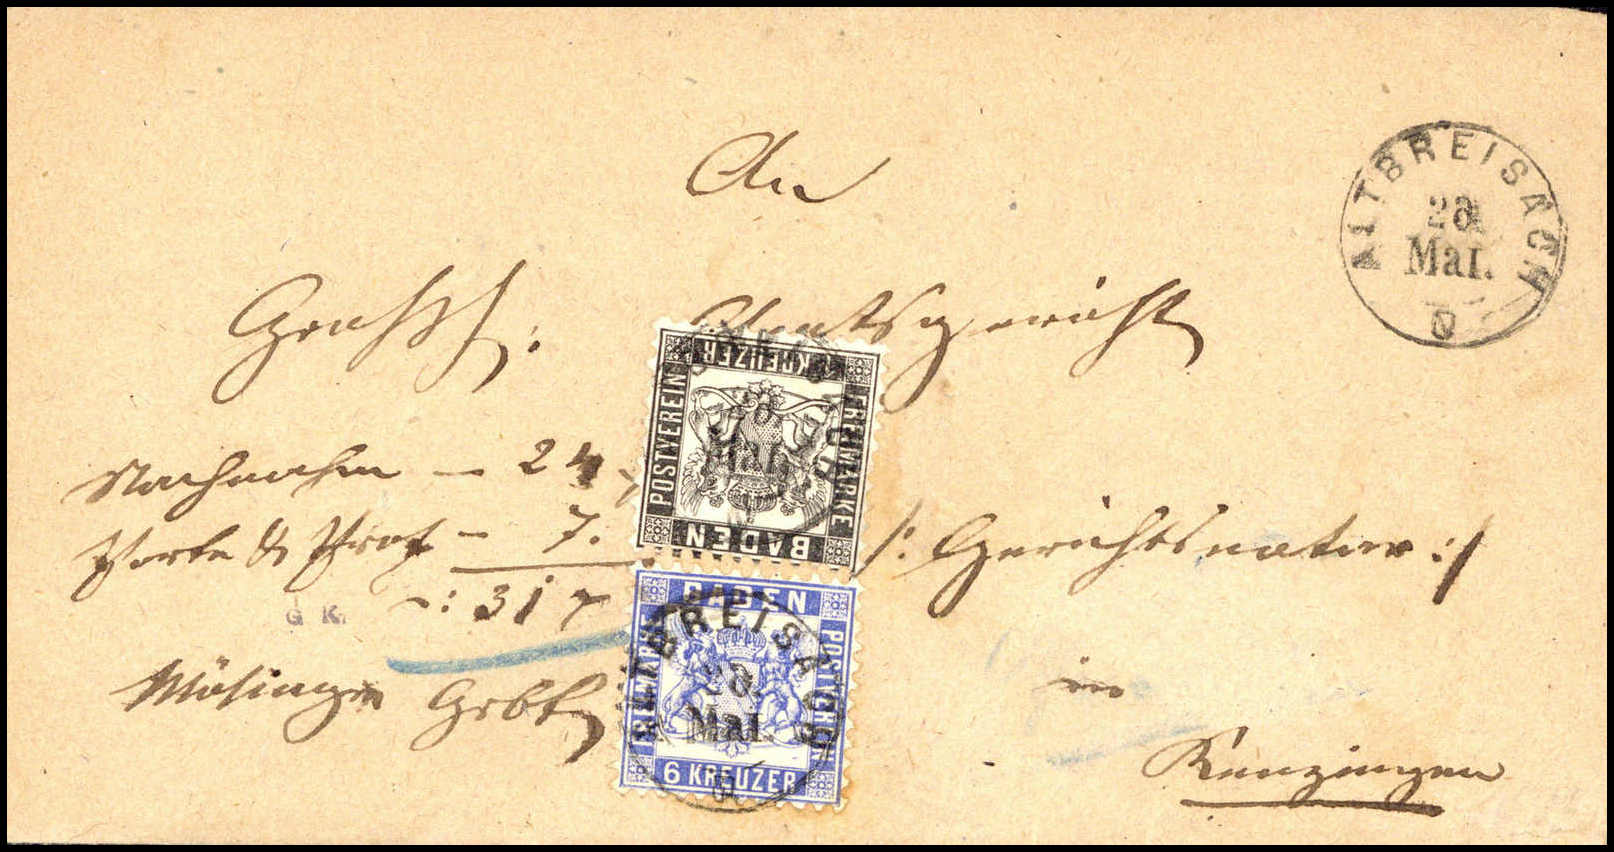 An
ALTBREISACH
28
Mai.
N
Grosshr: Amtsgericht
1 KREUZER
POSTVEREIN
FREIMARKE
BADEN
Nachnahme — 24
Porto & Prov — 7.
/: Gerichtsnotar :/
G K.
31
BADEN
FREIMARKE
POSTVEREIN
6 KREUZER
ALTBREISACH
28.
Mai.
in
Kenzingen